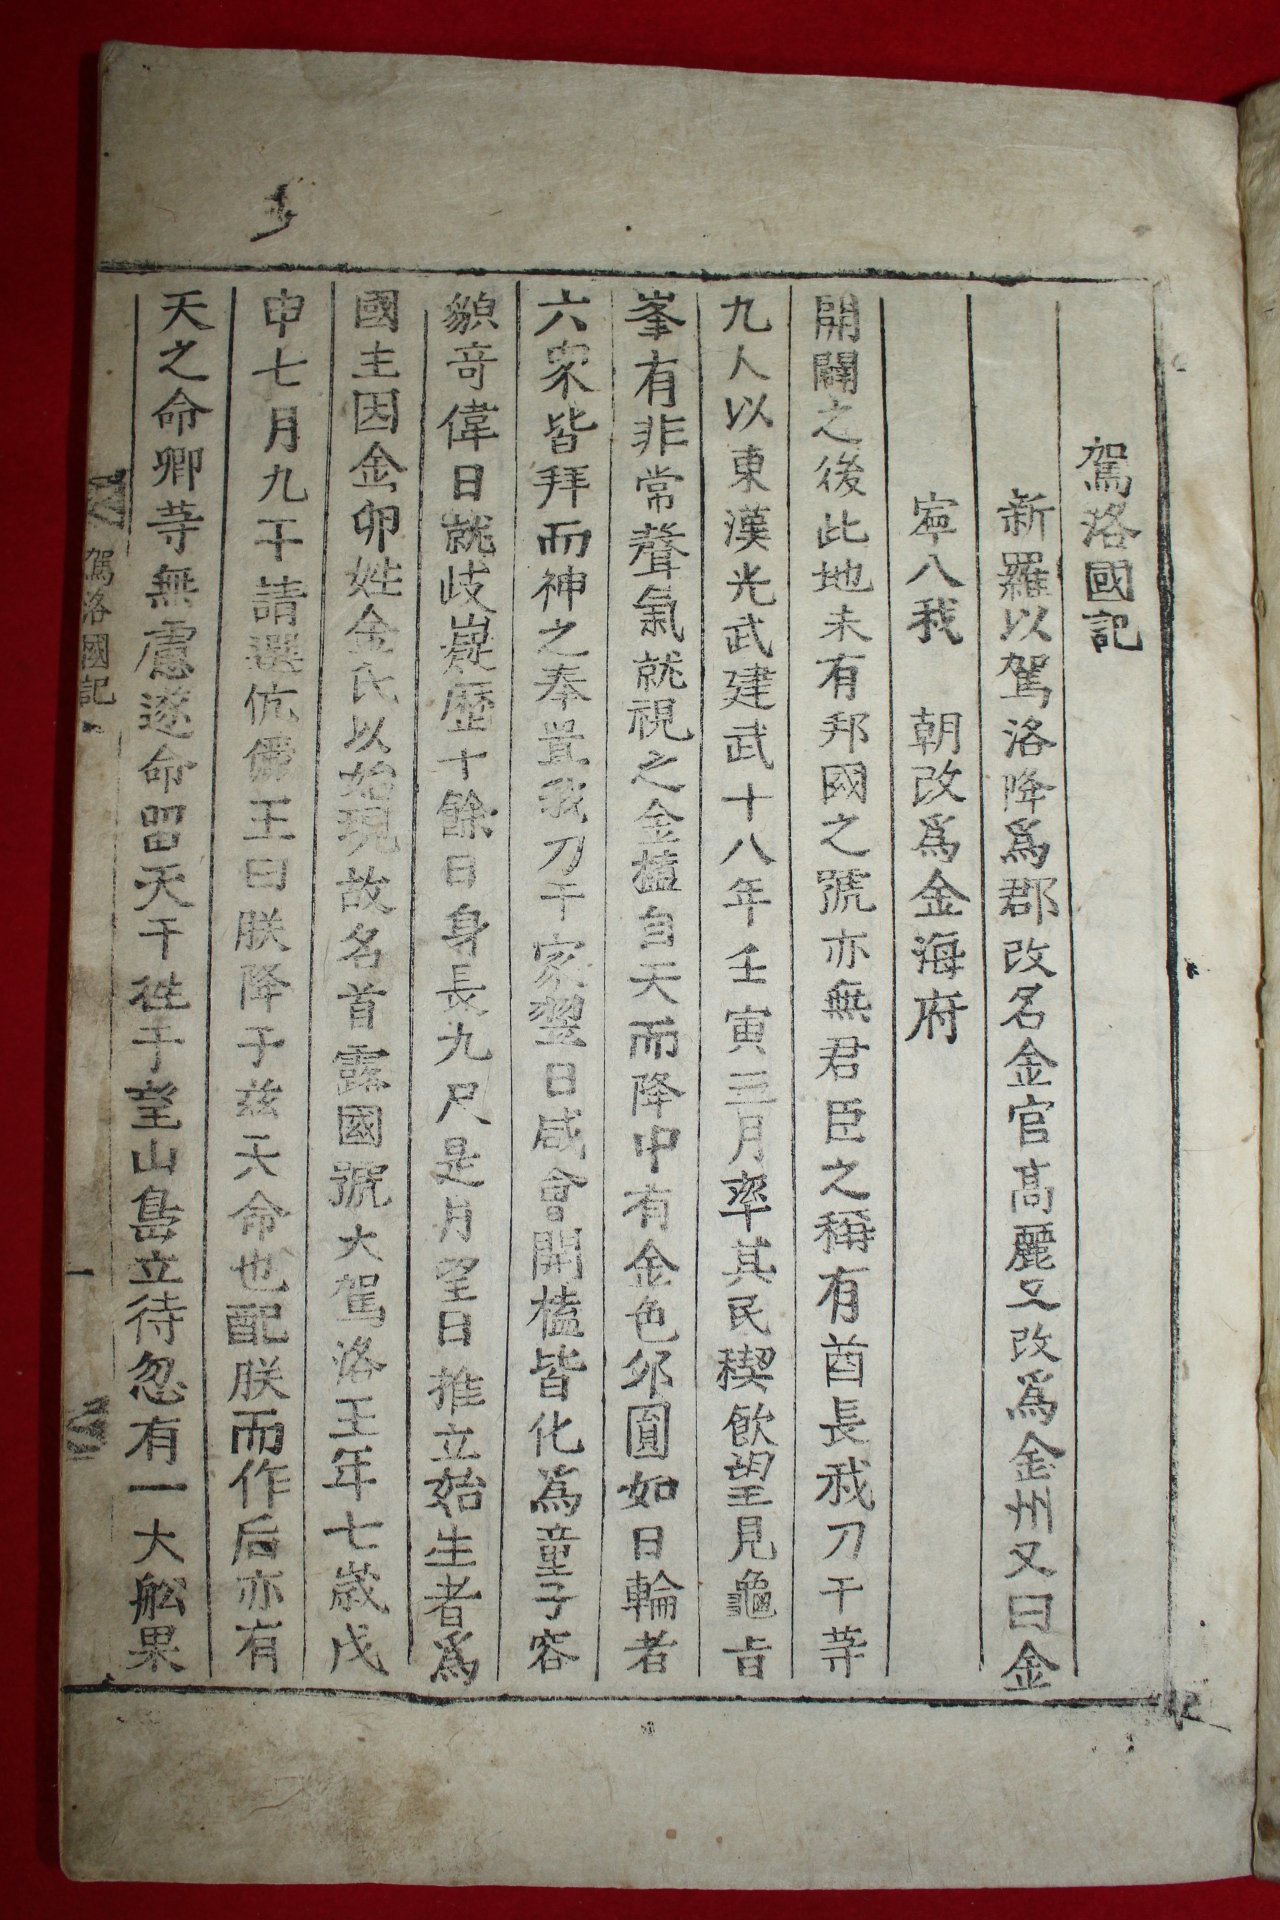 駕洛國記
新羅以駕洛降爲郡改名金官高麗又改爲金州又曰金
寧入我　朝改爲金海府
開闢之後此地未有邦國之號亦無君臣之稱有酋長我刀干等
九人以東漢光武建武十八年壬寅三月率其民禊飮望見龜旨
峯有非常聲氣就視之金榼自天而降中有金色卵圓如日輪者
六衆皆拜而神之奉置我刀干家翌日咸會開榼皆化爲童子容
貌奇偉日就岐嶷歷十餘日身長九尺是月望日推立始生者爲
國主因金卵姓金氏以始現故名首露國號大駕洛王年七歲戊
申七月九干請選伉儷王曰朕降于玆天命也配朕而作后亦有
天之命卿等無慮遂命留天干往于望山島立待忽有一大舩果
駕洛國記
一